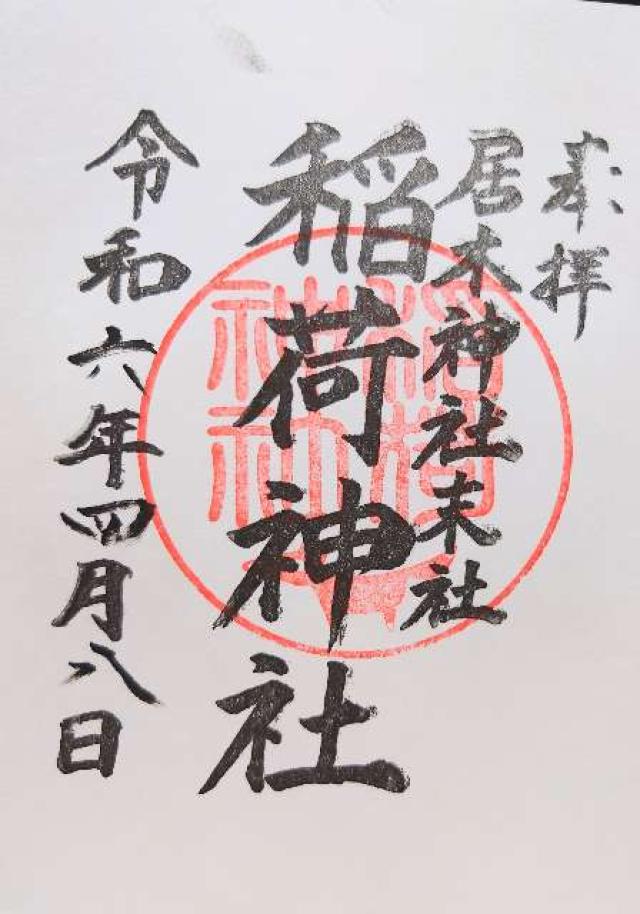 奉拝
居木神社末社
稲荷神社
令和六年四月八日